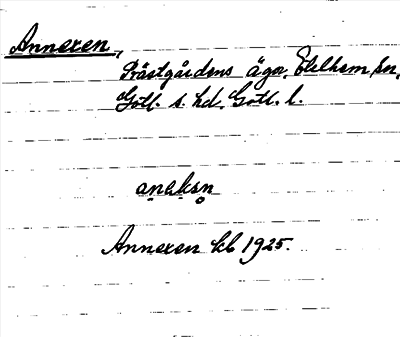 Annexen,
Prästgårdens ägor, Etelhem sn,
Gotl. s. hd. Gotl. l.
aneksn
Annexen kb 1925.